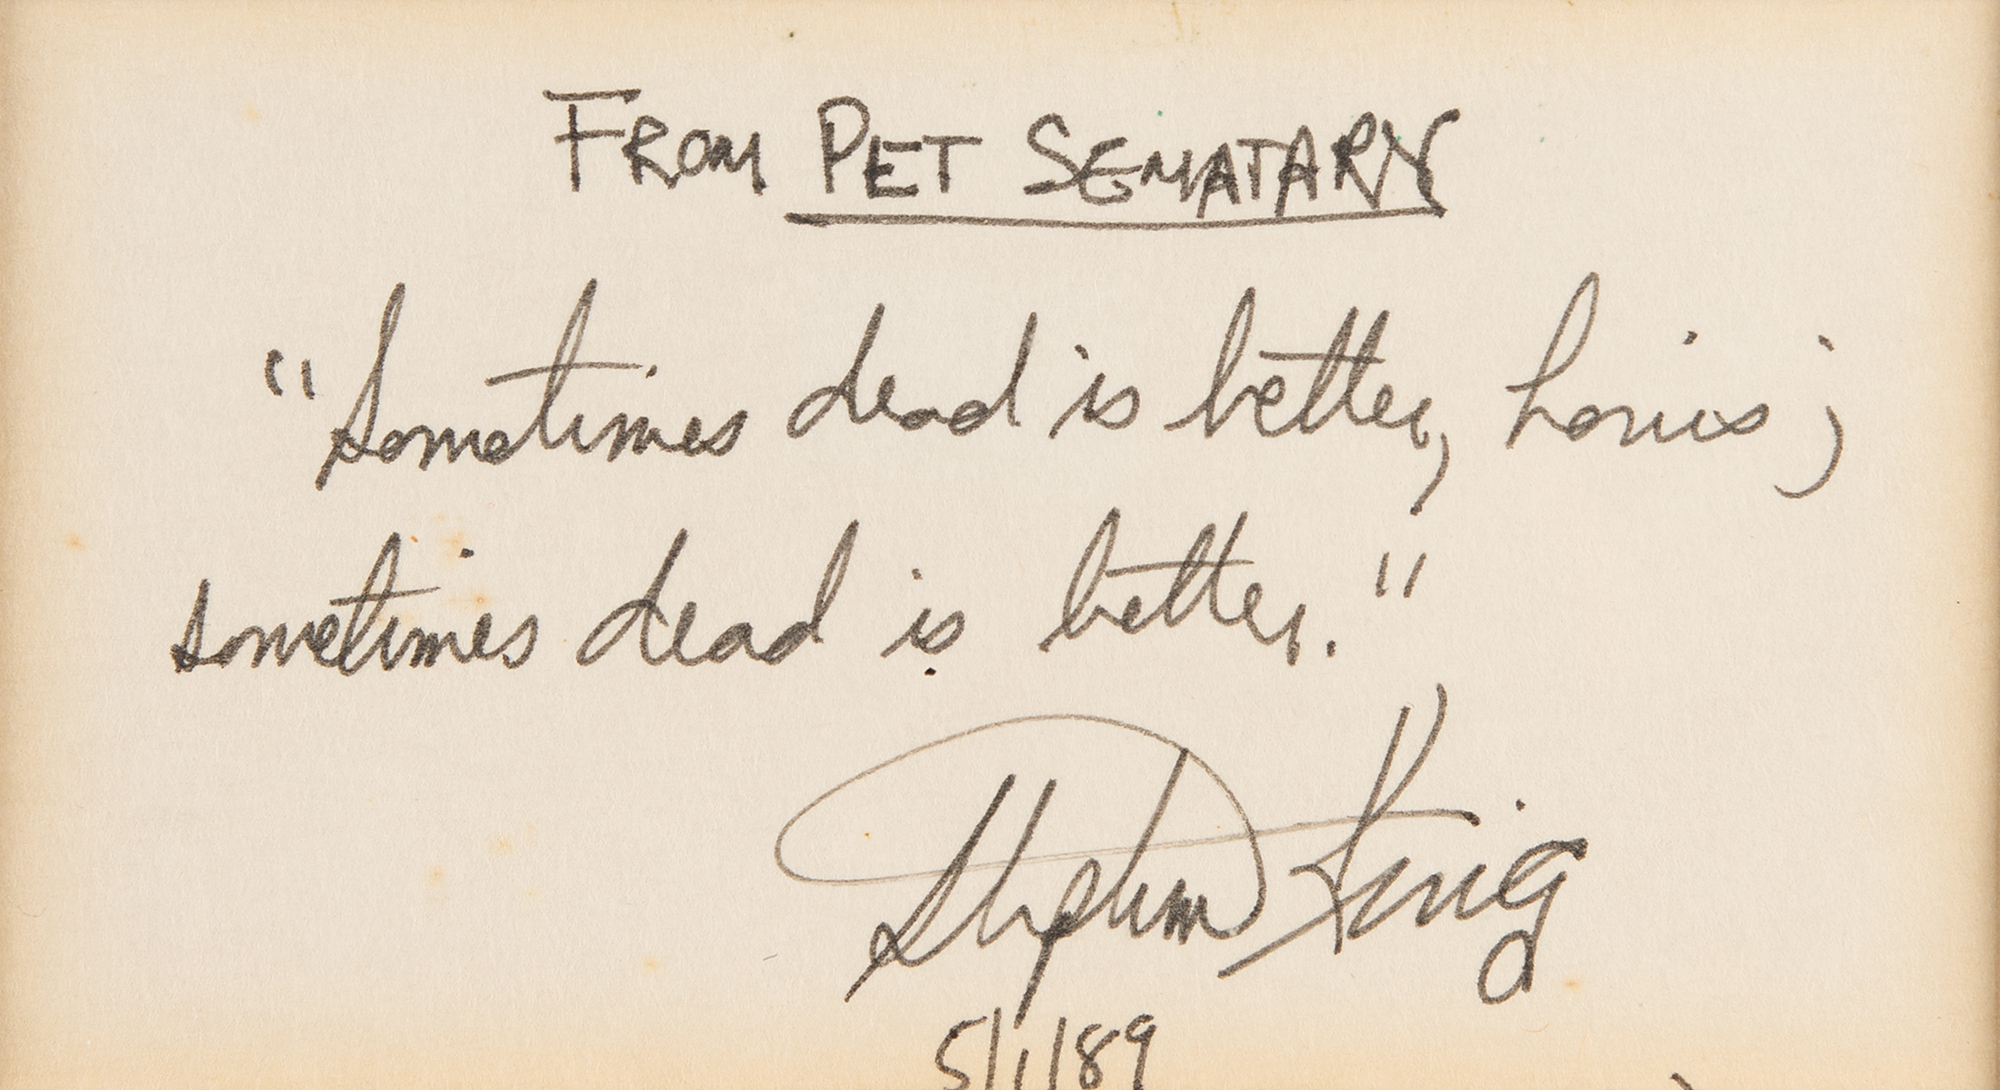 FROM PET SEMATARY
"Sometimes dead is better, Louis;
sometimes dead is better."
Stephen King
5/1/89